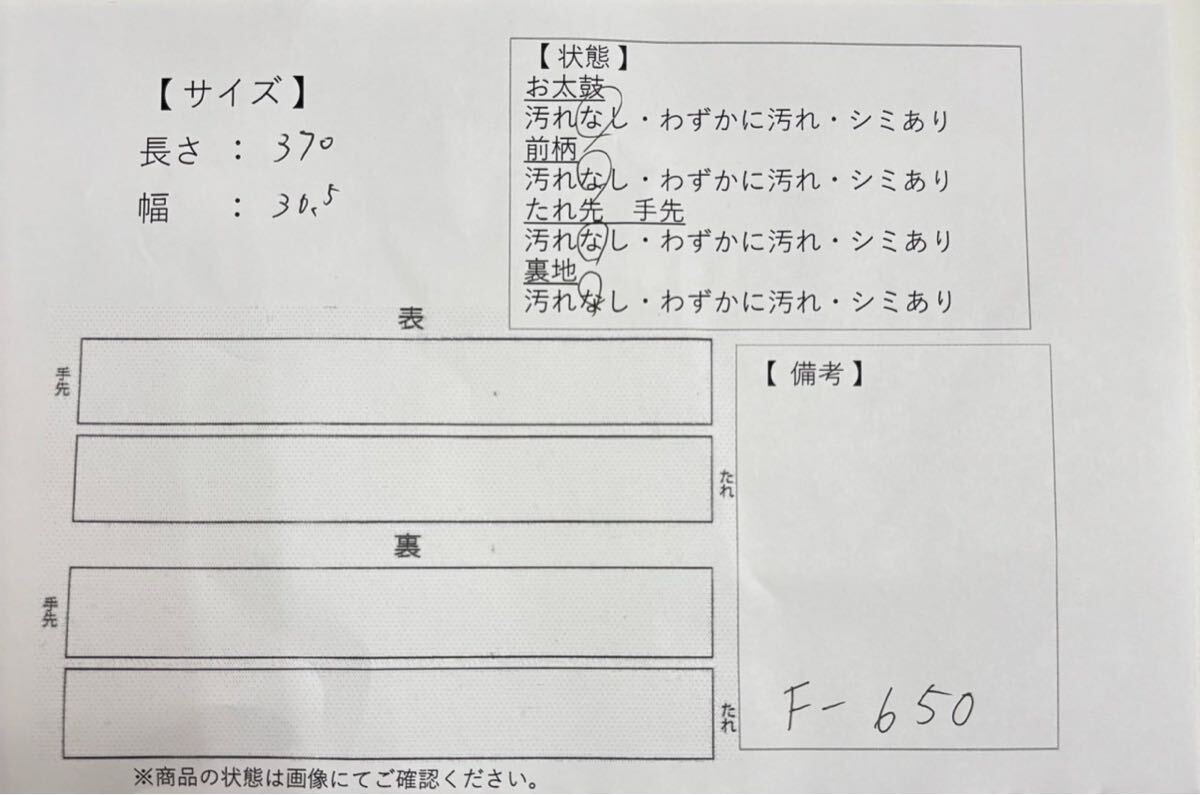 【サイズ】
長さ ： 370
幅 ： 30.5
【状態】
お太鼓
汚れなし・わずかに汚れ・シミあり
前柄
汚れなし・わずかに汚れ・シミあり
たれ先 手先
汚れなし・わずかに汚れ・シミあり
裏地
汚れなし・わずかに汚れ・シミあり
表
手先
たれ
裏
手先
たれ
【備考】
F-650
※商品の状態は画像にてご確認ください。